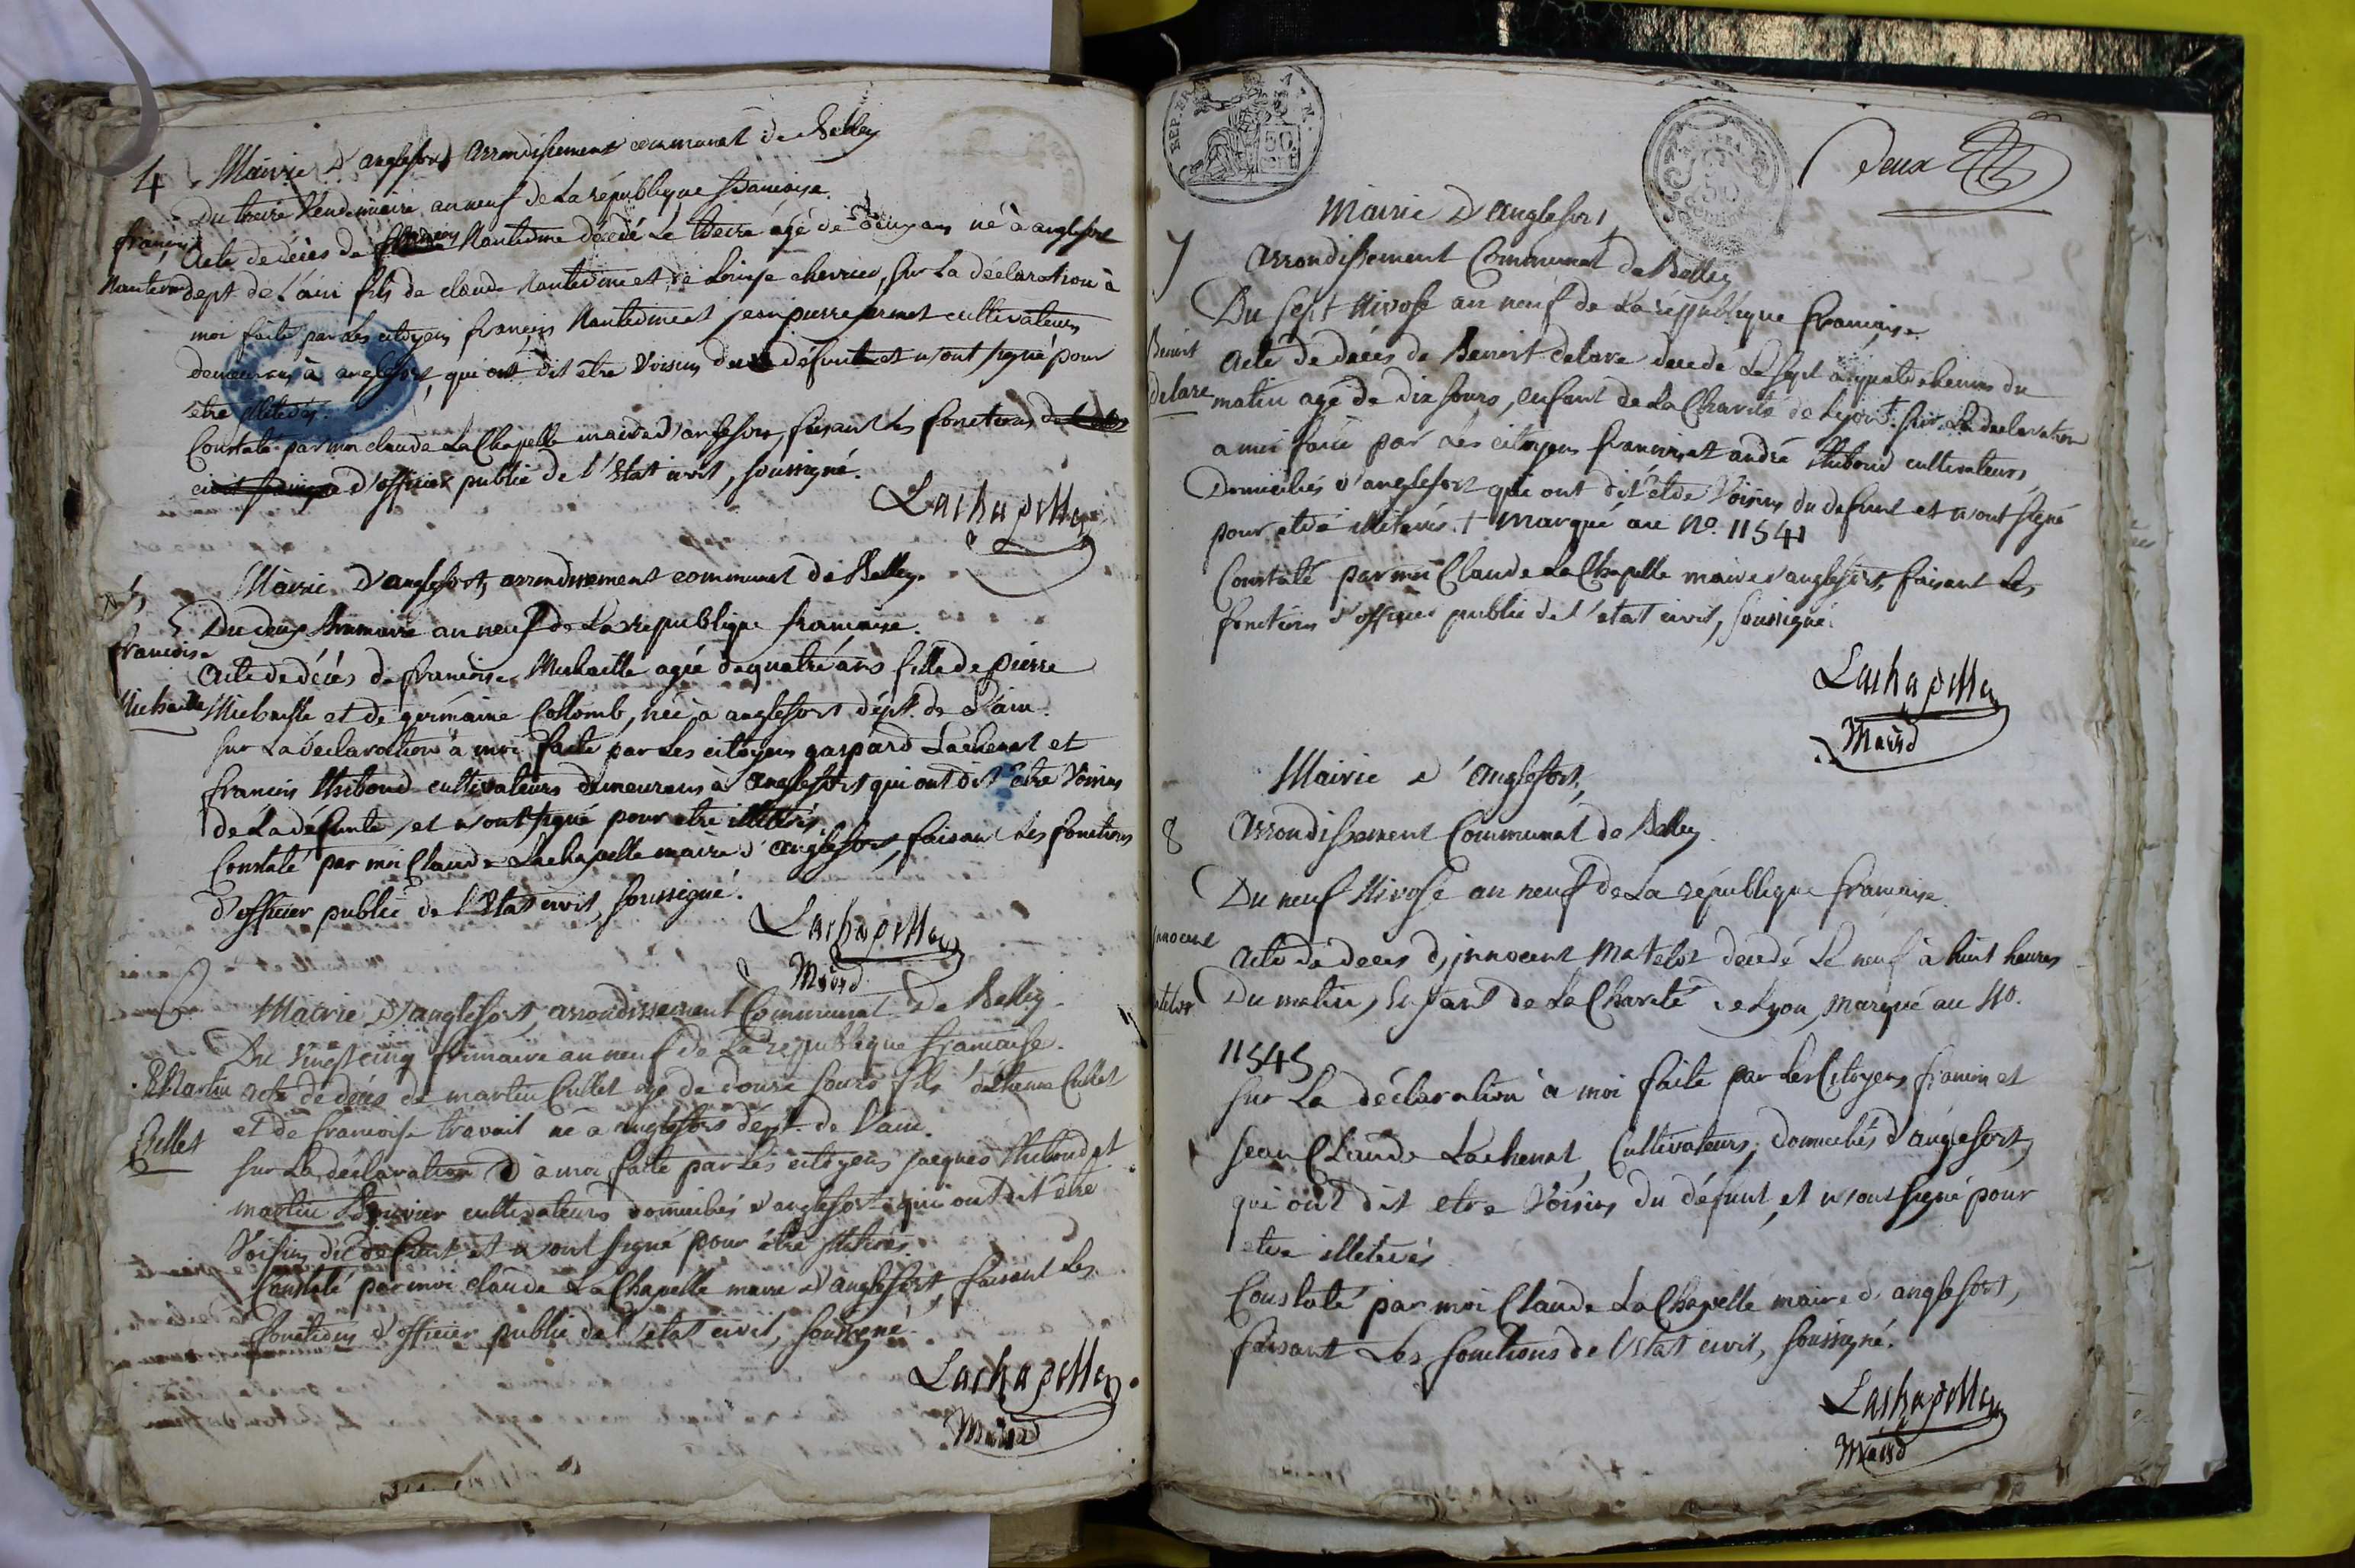 4 Mairie d'anglefort arrondissement communal de Belley
Du treize Vendemiaire an neuf de La république francoise.
françois
Acte de décès de françois Nantermé décédé Le treize agé de deux ans né à anglefort
Nantermé
dept. de L'ain fils de claude Nantermé et de Louise chervier, sur La déclaration à
moi faite par Les citoyens françois Nantermé et jean pierre cultivateurs
demeurans à anglefort, qui ont dit être Voisins du défunt et n'ont signé pour
être illeterés.
Constaté par moi claude La Chapelle maire d'anglefort, faisant les fonctions
d'officier public de l'Etat civil, soussigné.
Lachapelle
5 Mairie d'anglefort, arrondissement communal de Belley.
Du deux Brumaire an neuf de La republique francaise.
francoise
Acte de décès de francoise Michaille agée de quatre ans fille de pierre
Michaille
Michaille et de germaine Collomb, née à anglefort dépt. de L'ain.
sur La déclaration à moi faite par Les citoyens gaspard Lachenal et
francois thiboud cultivateurs demeurans à anglefort qui ont dit etre Voisins
de La défunte, et n'ont signé pour etre illeterés.
Constaté par moi Claude Lachapelle maire d'anglefort, faisant les fonctions
d'officier public de l'Etat civil, soussigné.
Lachapelle
Maire
6 Mairie d'anglefort, arrondissement Communal De Belley.
Du Vingt cinq frimaire an neuf de La republique francaise.
Martin
acte de décès de martin Cullet agé de douze jours fils d'étienne Cullet
Cullet
et de francoise travail né à anglefort dépt. de l'ain.
sur La déclaration à moi faite par Les citoyens jacques thiboud et
martin Bouvier cultivateurs domiciliés d'anglefort qui ont dit être
Voisins du défunt et n'ont signé pour être illeterés.
Constaté par moi claude La Chapelle maire d'anglefort, faisant Les
fonctions d'officier public de l'état civil, soussigné.
Lachapelle
Maire
REP. FRA
50
cent
Deux
7 Mairie d'anglefort,
arrondissement Communal de Belley
Du Sept Nivose an neuf de La république francaise.
Benoit
acte de décès de Benoit delore decedé Le sept à quatre heures du
delore
matin agé de dix jours, enfant de La Charité de Lyon + sur La declaration
a moi faite par Les citoyens francois et andré thiboud cultivateurs
Domiciliés d'anglefort qui ont dit être Voisins du defunt et n'ont signé
pour etre illeterés. + marqué au No. 11541
Constaté par moi Claude La Chapelle maire d'anglefort, faisant Les
fonctions d'officier public de l'etat civil, soussigné.
Lachapelle
Maire
Mairie d'anglefort,
8 arrondissement Communal de Belley.
Du neuf Nivose an neuf de La république francaise.
innocent
acte de deces d'innocent Matelot decedé Le neuf à huit heures
Du matin, Enfant de La Charité de Lyon, marqué au No.
11545
sur La déclaration à moi faite par Les Citoyens francois et
jean Claude Lachenal, Cultivateurs, domiciliés d'anglefort,
qui ont dit etre Voisins du défunt, et n'ont signé pour
etre illeterés
Constaté par moi Claude La Chapelle maire d'anglefort,
faisant Les fonctions de l'Etat civil, soussigné.
Lachapelle
Maire